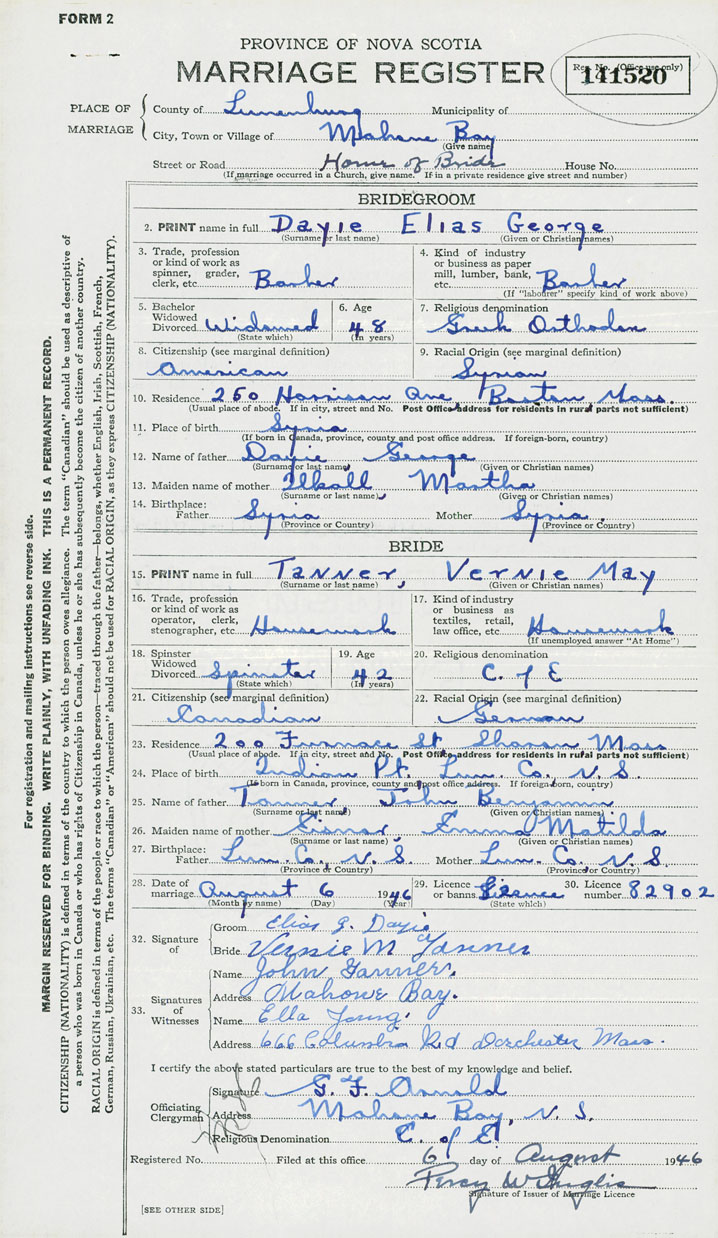 FORM 2
PROVINCE OF NOVA SCOTIA
MARRIAGE REGISTER
Reg. No. (Office use only)
141520
PLACE OF MARRIAGE
County of Lunenburg Municipality of
City, Town or Village of Mahone Bay
(Give name)
Street or Road Home of Bride House No.
(If marriage occurred in a Church, give name. If in a private residence give street and number)
BRIDEGROOM
2. PRINT name in full Dayie Elias George
(Surname or last name) (Given or Christian names)
3. Trade, profession or kind of work as spinner, grader, clerk, etc. Barber
4. Kind of industry or business as paper mill, lumber, bank, etc. Barber
(If "labourer" specify kind of work above)
5. Bachelor Widowed Divorced Widowed
(State which)
6. Age 48
(In years)
7. Religious denomination
Greek Orthodox
8. Citizenship (see marginal definition)
American
9. Racial Origin (see marginal definition)
Syrian
10. Residence 250 Harrison Ave, Boston Mass.
(Usual place of abode. If in city, street and No. Post Office address for residents in rural parts not sufficient)
11. Place of birth Syria
(If born in Canada, province, county and post office address. If foreign-born, country)
12. Name of father Dayie George
(Surname or last name) (Given or Christian names)
13. Maiden name of mother Elkoll Martha
(Surname or last name) (Given or Christian names)
14. Birthplace:
Father Syria Mother Syria
(Province or Country) (Province or Country)
BRIDE
15. PRINT name in full Tanner, Vernie May
(Surname or last name) (Given or Christian names)
16. Trade, profession or kind of work as operator, clerk, stenographer, etc. Housework
17. Kind of industry or business as textiles, retail, law office, etc. Housework
(If unemployed answer "At Home")
18. Spinster Widowed Divorced Spinster
(State which)
19. Age 42
(In years)
20. Religious denomination
C. of E
21. Citizenship (see marginal definition)
Canadian
22. Racial Origin (see marginal definition)
German
23. Residence 200 Furnace St Sharon Mass
(Usual place of abode. If in city, street and No. Post Office address for residents in rural parts not sufficient)
24. Place of birth Indian Pt. Lun. Co., N. S.
(If born in Canada, province, county and post office address. If foreign born, country)
25. Name of father Tanner, John Benjamin
(Surname or last name) (Given or Christian names)
26. Maiden name of mother Eisnor Emma Matilda
(Surname or last name) (Given or Christian names)
27. Birthplace:
Father Lun. Co., N. S. Mother Lun. Co. N. S.
(Province or Country) (Province or Country)
28. Date of marriage August 6 1946
(Month by name) (Day) (Year)
29. Licence or banns Licence
(State which)
30. Licence number 82902
32. Signature of
Groom Elias G. Dayie
Bride Vernie M Tanner
33. Signatures of Witnesses
Name John Tanner
Address Mahone Bay.
Name Ella Young
Address 666 Columbia Rd Dorchester Mass.
I certify the above stated particulars are true to the best of my knowledge and belief.
Officiating Clergyman
Signature G. F. Arnold
Address Mahone Bay, N. S.
Religious Denomination C. of E
Registered No. Filed at this office 6 day of August 1946
Percy W Inglis
Signature of Issuer of Marriage Licence
[SEE OTHER SIDE]
For registration and mailing instructions see reverse side.
MARGIN RESERVED FOR BINDING. WRITE PLAINLY, WITH UNFADING INK. THIS IS A PERMANENT RECORD.
CITIZENSHIP (NATIONALITY) is defined in terms of the country to which the person owes allegiance. The term "Canadian" should be used as descriptive of
a person who was born in Canada or who has rights of Citizenship in Canada, unless he or she has subsequently become the citizen of another country.
RACIAL ORIGIN is defined in terms of the people or race to which the person—traced through the father—belongs, whether English, Irish, Scottish, French,
German, Russian, Ukrainian, etc. The terms "Canadian" or "American" should not be used for RACIAL ORIGIN, as they express CITIZENSHIP (NATIONALITY).